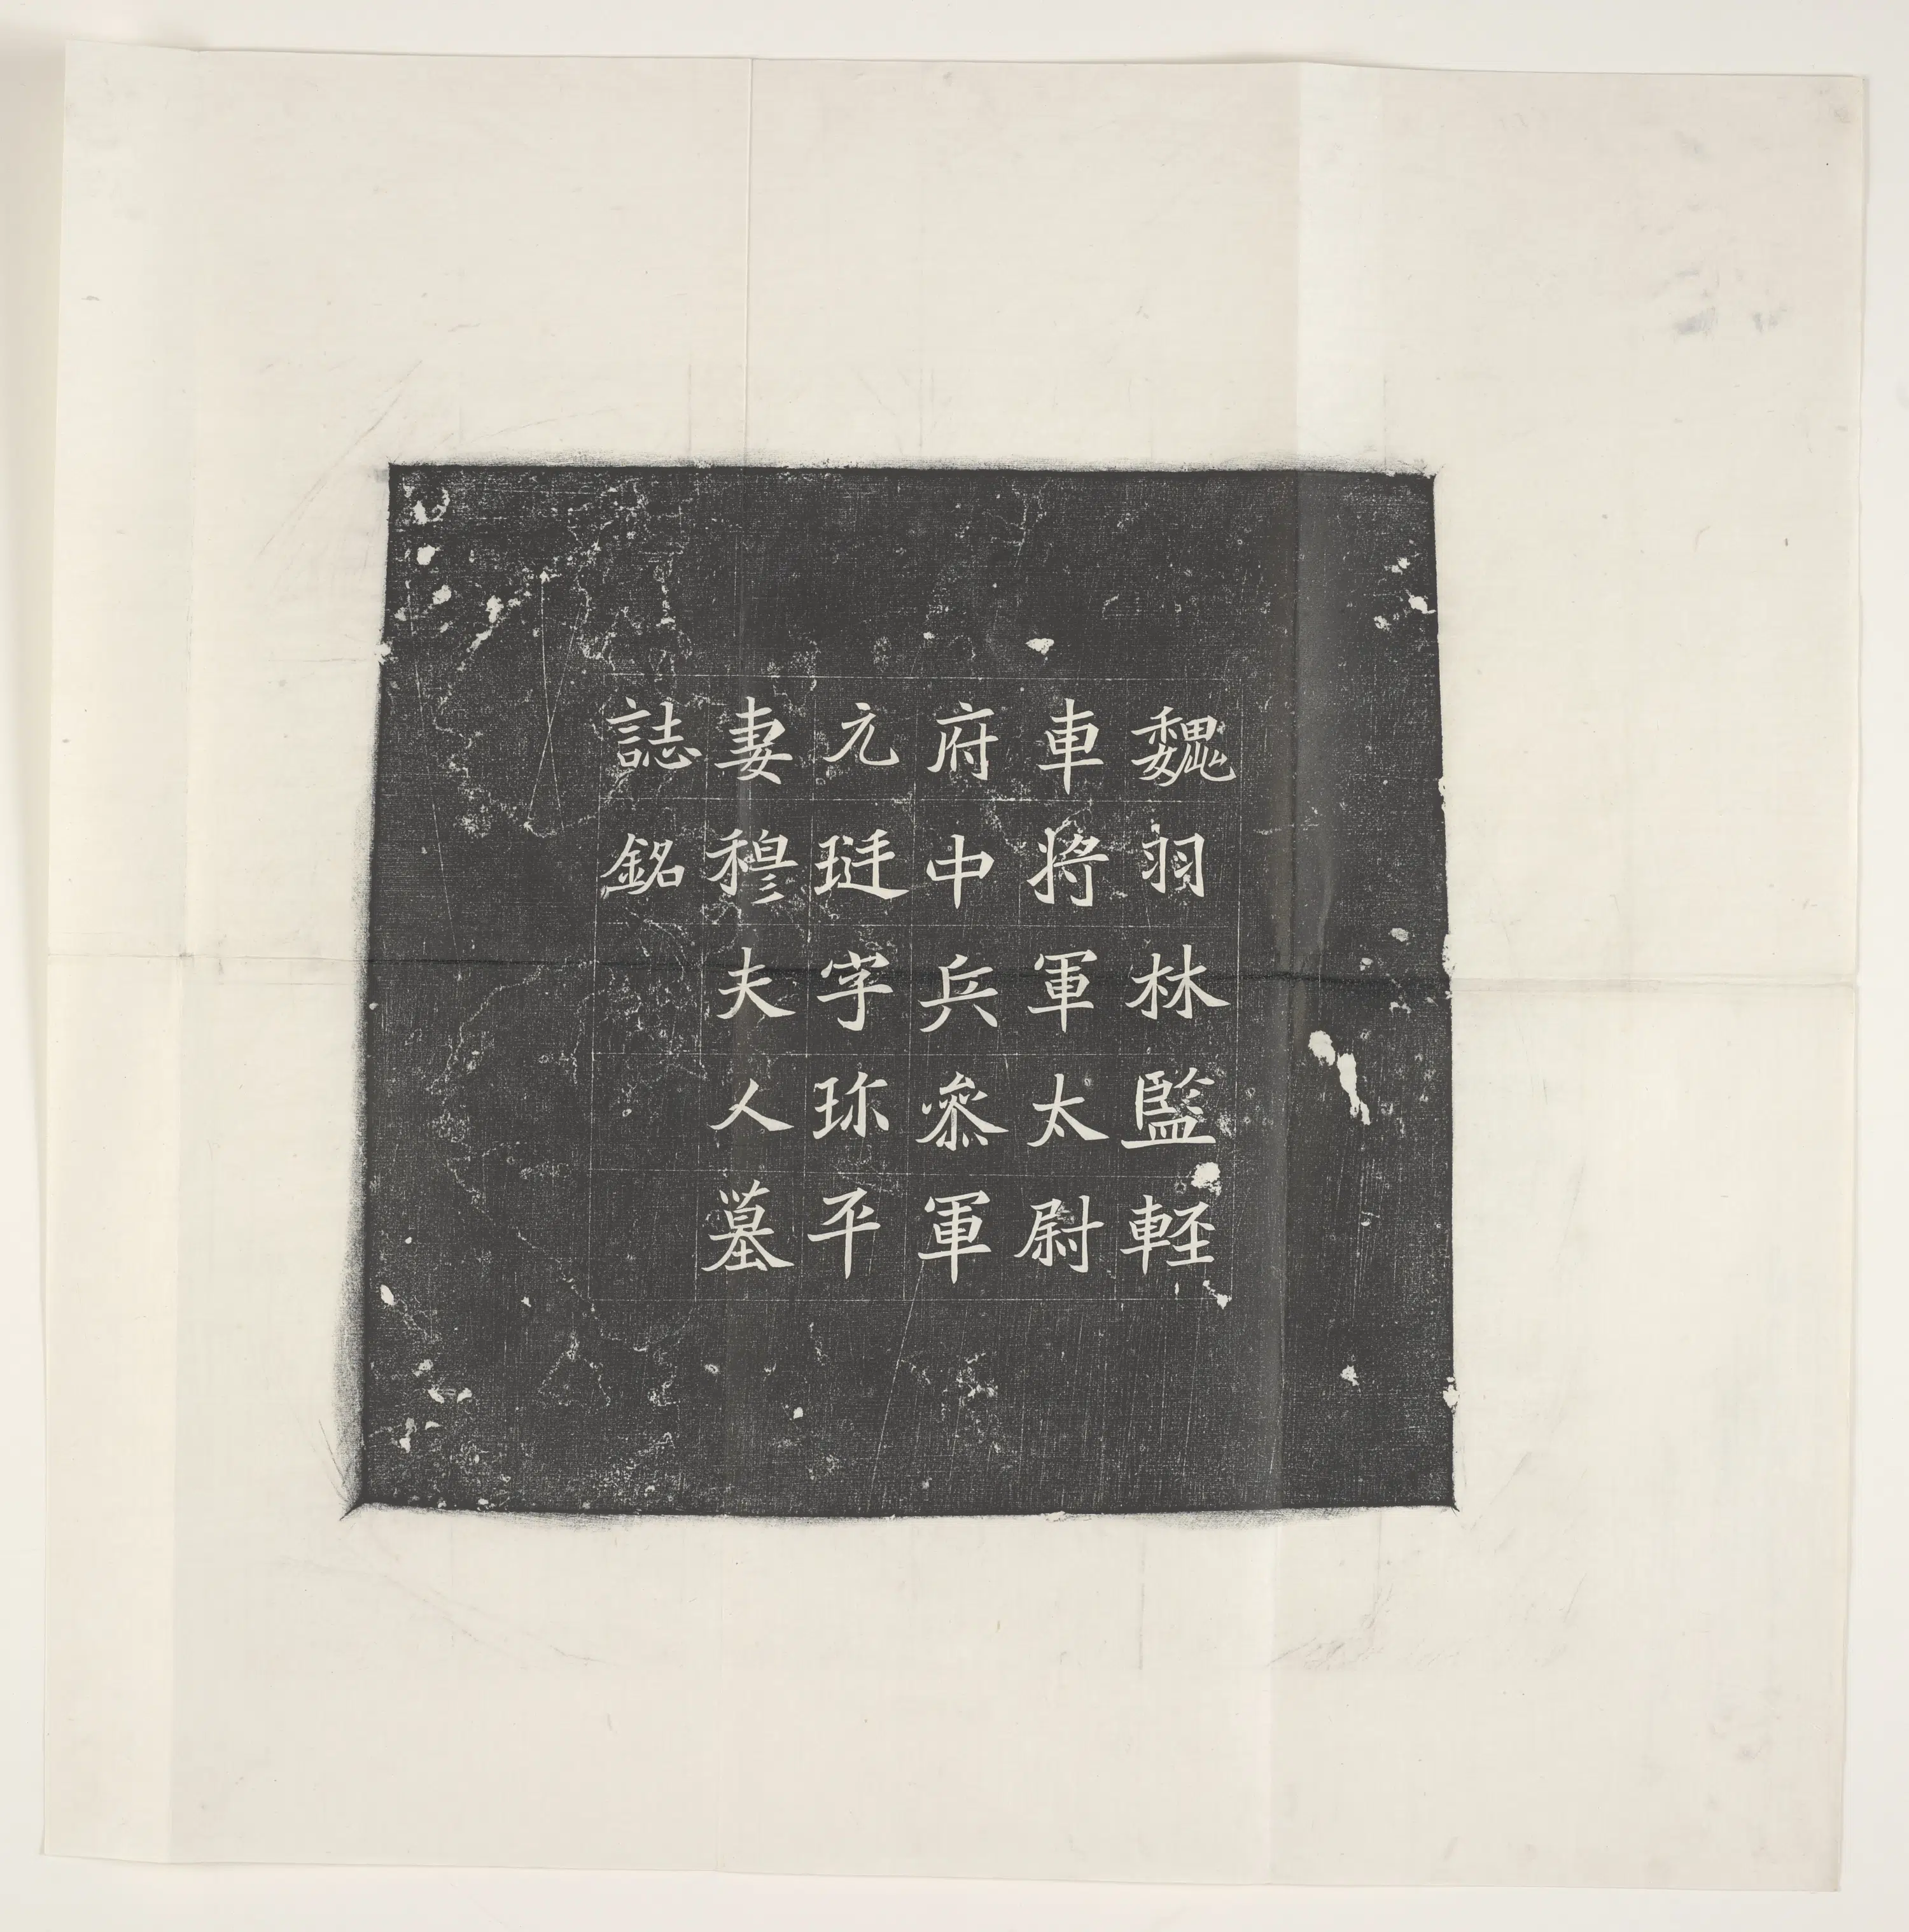 魏羽林監軽
車将軍太尉
府中兵叅軍
元珽字珎平
妻穆夫人墓
誌銘